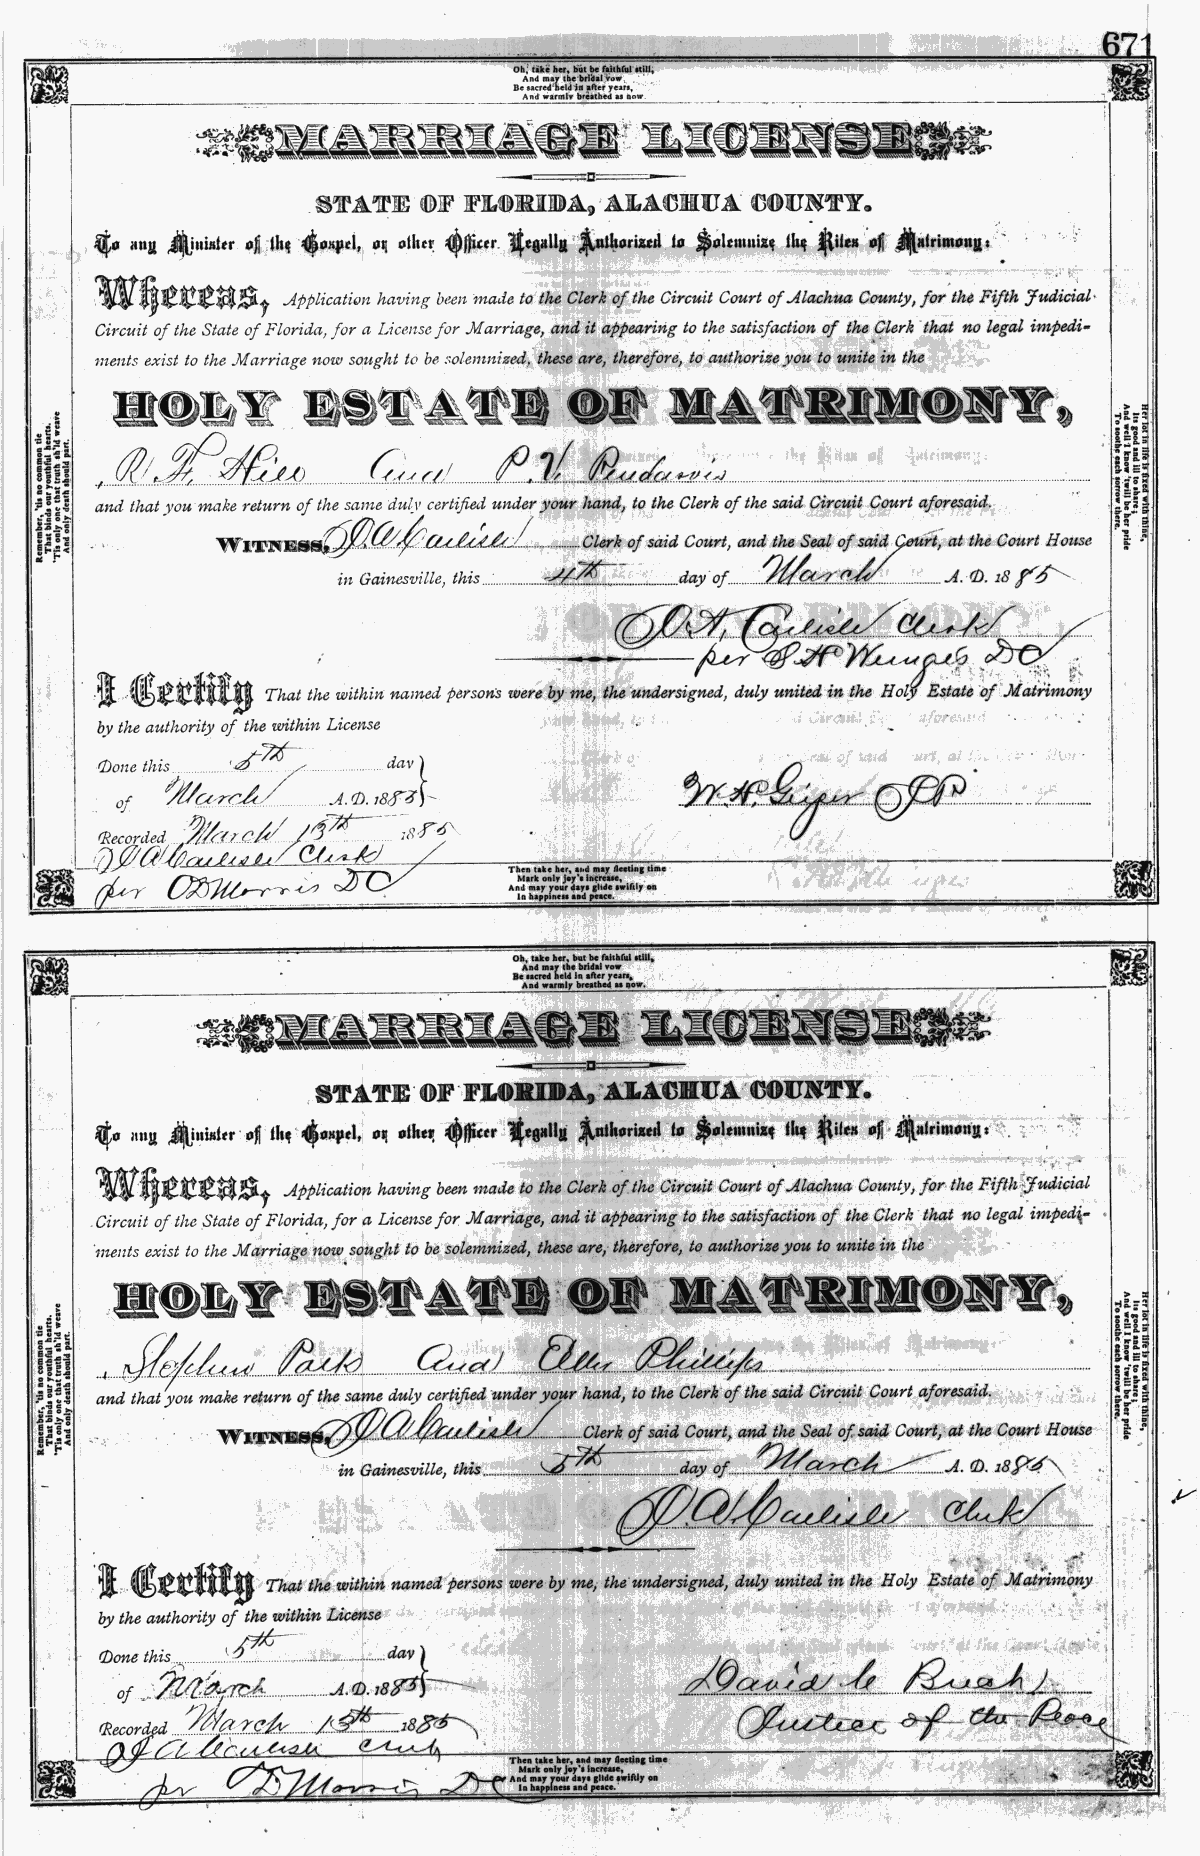 671
Oh, take her, but be faithful still,
And may the bridal vow
Be sacred held in after years,
And warmly breathed as now.
MARRIAGE LICENSE
STATE OF FLORIDA, ALACHUA COUNTY.
To any Minister of the Gospel, or other Officer Legally Authorized to Solemnize the Rites of Matrimony:
Whereas, Application having been made to the Clerk of the Circuit Court of Alachua County, for the Fifth Judicial
Circuit of the State of Florida, for a License for Marriage, and it appearing to the satisfaction of the Clerk that no legal impedi-
ments exist to the Marriage now sought to be solemnized, these are, therefore, to authorize you to unite in the
HOLY ESTATE OF MATRIMONY,
R. F. Hill and P. V. Pendarvis
and that you make return of the same duly certified under your hand, to the Clerk of the said Circuit Court aforesaid.
WITNESS, J. A. Carlisle Clerk of said Court, and the Seal of said Court, at the Court House
in Gainesville, this 4th day of March A. D. 1885
J. A. Carlisle Clerk
per S H DC
I Certify That the within named persons were by me, the undersigned, duly united in the Holy Estate of Matrimony
by the authority of the within License
Done this 5th day
of March A. D. 1885
W. H. Geiger JP
Recorded March 13th 1885
J A Carlisle Clerk
per O D Morris DC
Then take her, and may fleeting time
Mark only joy's increase,
And may your days glide swiftly on
In happiness and peace.
Remember, 'tis no common tie
That binds our youthful hearts,
'Tis only one that truth sh'ld weave
And only death should part.
Her lot in life is fixed with thine,
Its good and ill to share;
And well I know 'twill be her pride
To soothe each sorrow there.
Oh, take her, but be faithful still,
And may the bridal vow
Be sacred held in after years,
And warmly breathed as now.
MARRIAGE LICENSE
STATE OF FLORIDA, ALACHUA COUNTY.
To any Minister of the Gospel, or other Officer Legally Authorized to Solemnize the Rites of Matrimony:
Whereas, Application having been made to the Clerk of the Circuit Court of Alachua County, for the Fifth Judicial
Circuit of the State of Florida, for a License for Marriage, and it appearing to the satisfaction of the Clerk that no legal impedi-
ments exist to the Marriage now sought to be solemnized, these are, therefore, to authorize you to unite in the
HOLY ESTATE OF MATRIMONY,
Stephen and Ellen Phillips
and that you make return of the same duly certified under your hand, to the Clerk of the said Circuit Court aforesaid.
WITNESS, J A Carlisle Clerk of said Court, and the Seal of said Court, at the Court House
in Gainesville, this 5th day of March A. D. 1885
J. A Carlisle Clerk
I Certify That the within named persons were by me, the undersigned, duly united in the Holy Estate of Matrimony
by the authority of the within License
Done this 5th day
of March A. D. 1885
David C
Justice of the Peace
Recorded March 13th 1885
J A Carlisle Clerk
per O D Morris DC
Then take her, and may fleeting time
Mark only joy's increase,
And may your days glide swiftly on
In happiness and peace.
Remember, 'tis no common tie
That binds our youthful hearts.
'Tis only one that truth sh'ld weave
And only death should part.
Her lot in life is fixed with thine,
Its good and ill to share;
And well I know 'twill be her pride
To soothe each sorrow there.